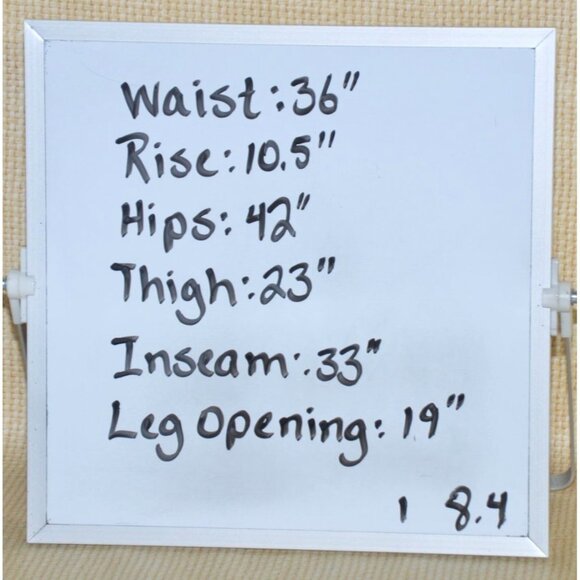 Waist: 36"
Rise: 10.5"
Hips: 42"
Thigh: 23"
Inseam: 33"
Leg Opening: 19"
1 8.4